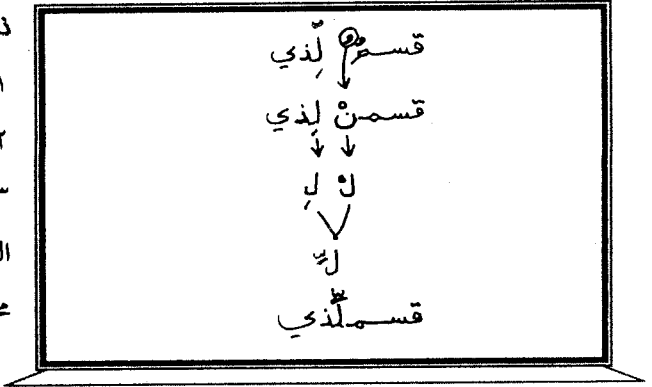 قسمٌ لِّذي
قسمنْ لِذي
لْ لِ
لِّ
قسملِّذي